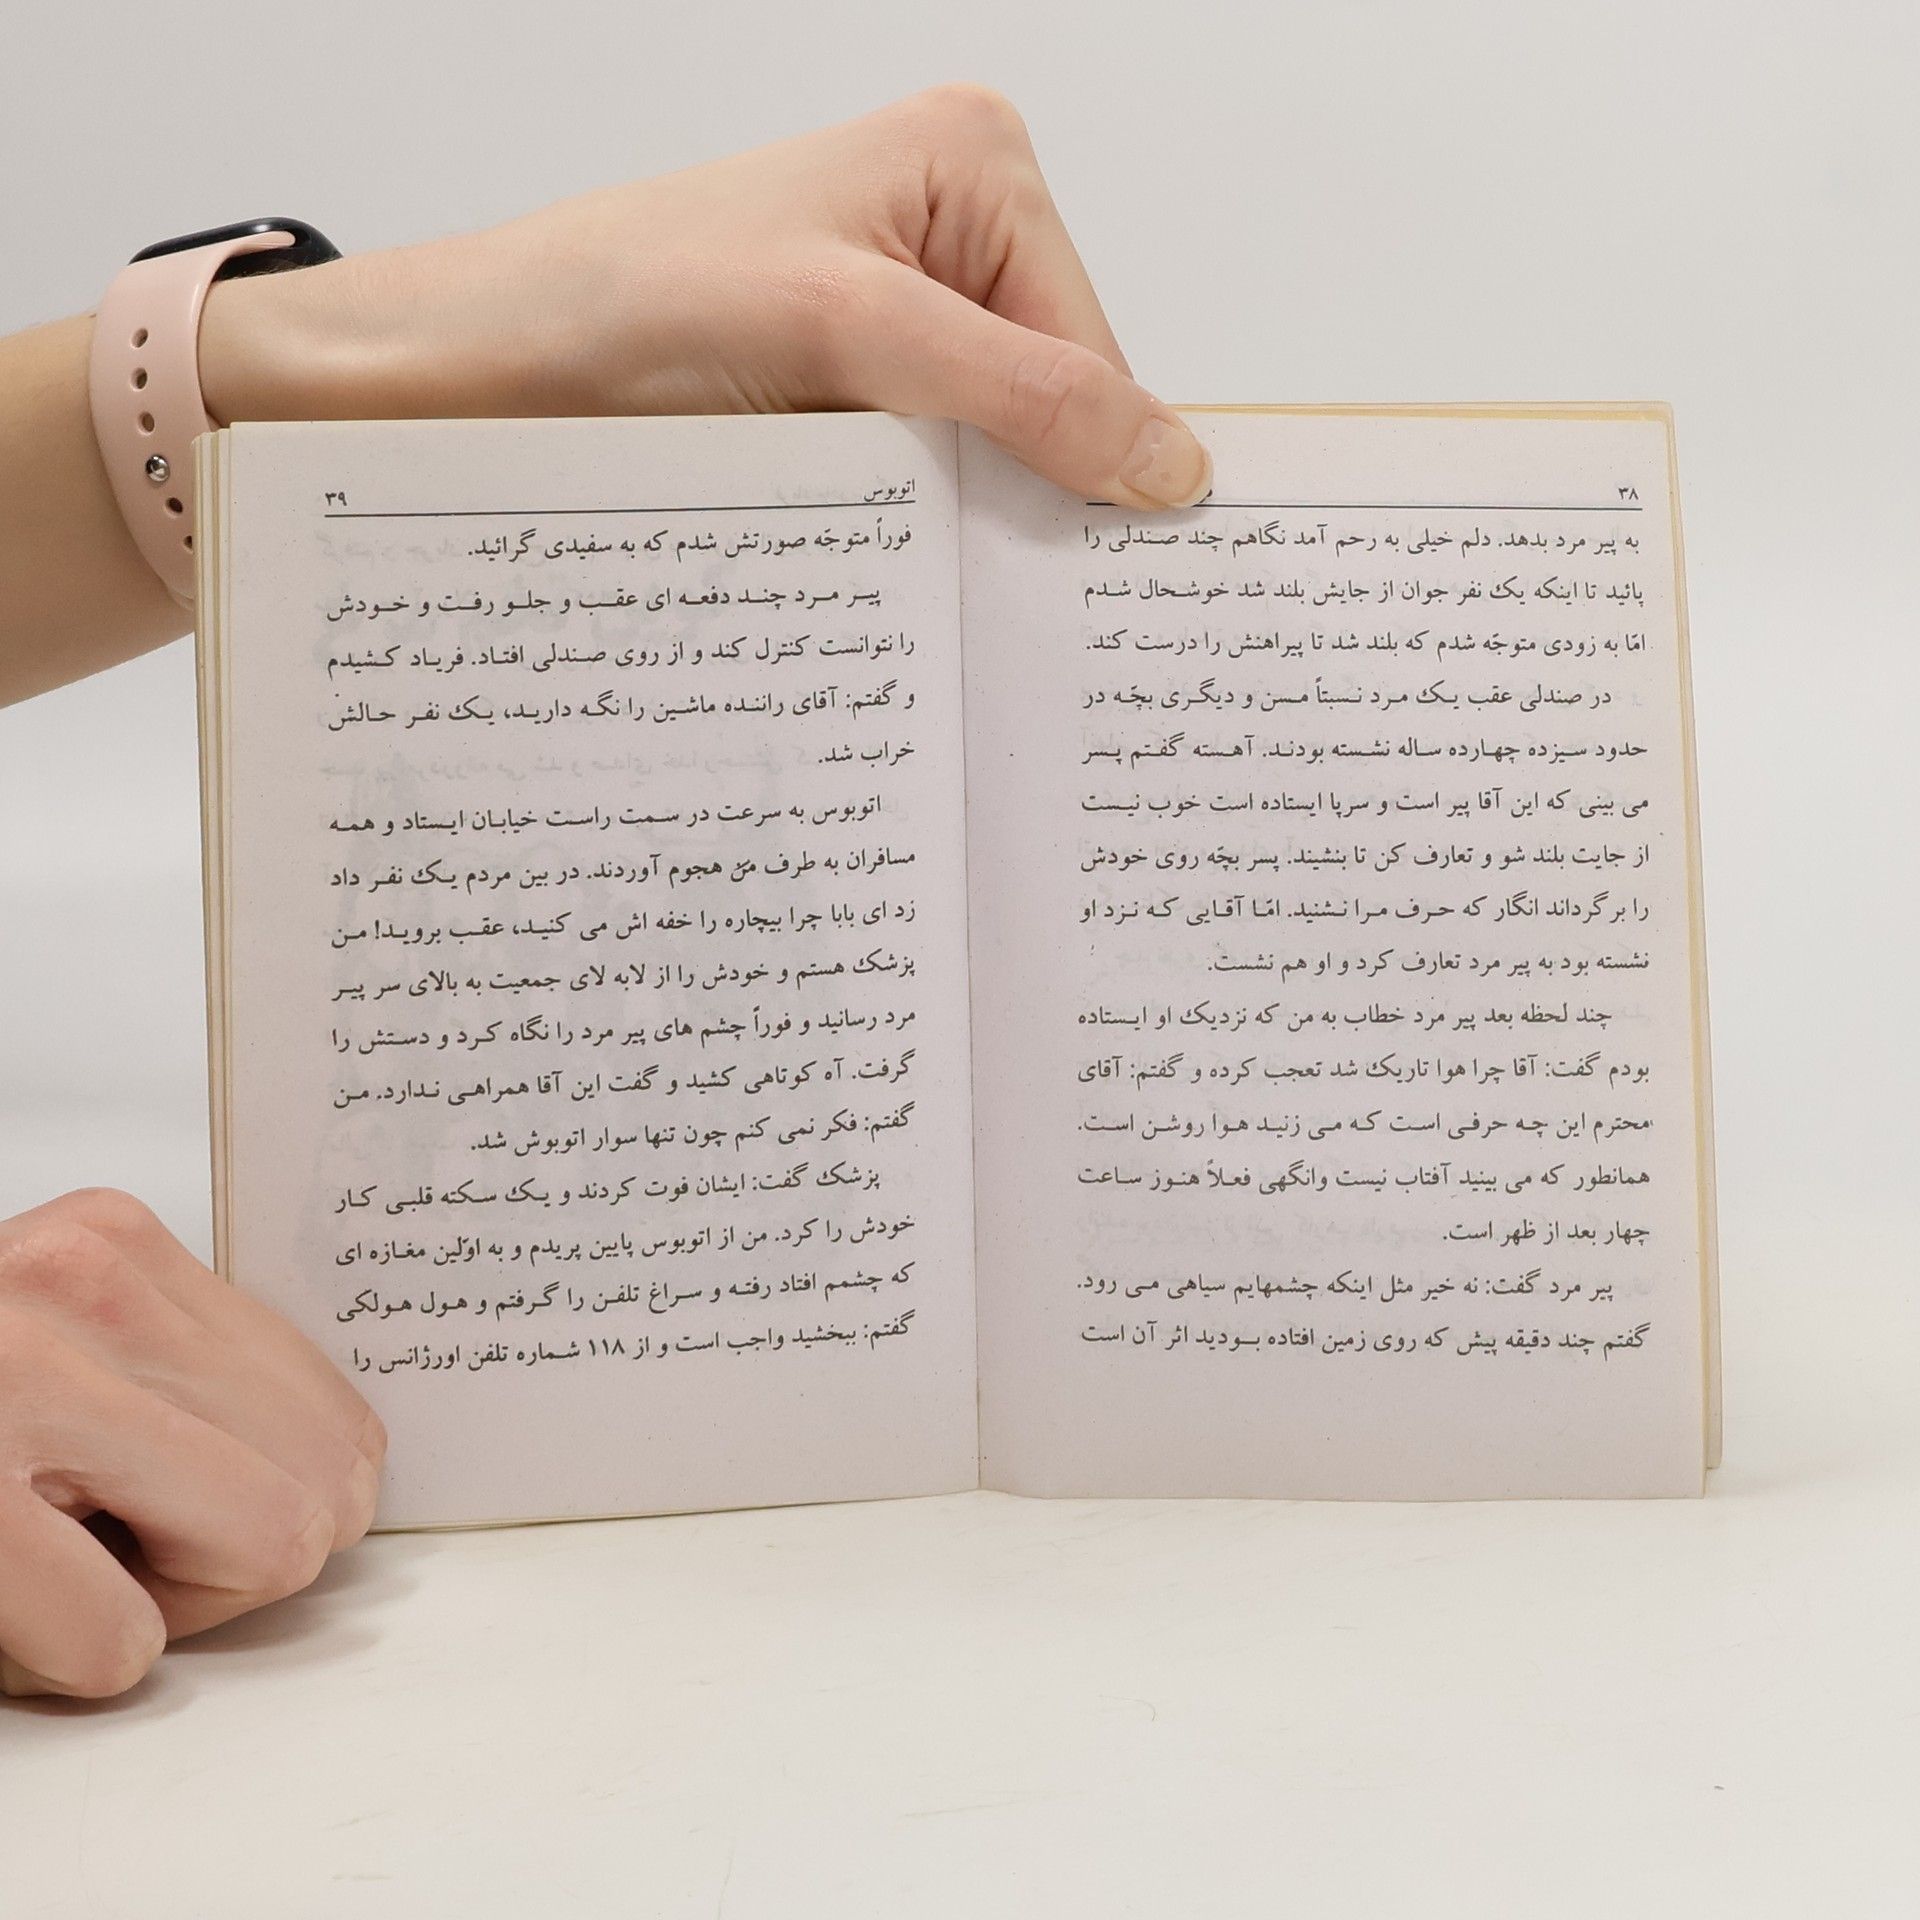 ۳۸
به پیر مرد بدهد. دلم خیلی به رحم آمد نگاهم چند صندلی را
پائید تا اینکه یک نفر جوان از جایش بلند شد خوشحال شدم
امّا به زودی متوجّه شدم که بلند شد تا پیراهنش را درست کند.
در صندلی عقب یک مرد نسبتاً مسن و دیگری بچّه در
حدود سیزده چهارده ساله نشسته بودند. آهسته گفتم پسر
می بینی که این آقا پیر است و سرپا ایستاده است خوب نیست
از جایت بلند شو و تعارف کن تا بنشیند. پسر بچّه روی خودش
را برگرداند انگار که حرف مرا نشنید. امّا آقایی که نزد او
نشسته بود به پیر مرد تعارف کرد و او هم نشست.
چند لحظه بعد پیر مرد خطاب به من که نزدیک او ایستاده
بودم گفت: آقا چرا هوا تاریک شد تعجب کرده و گفتم: آقای
محترم این چه حرفی است که می زنید هوا روشن است.
همانطور که می بینید آفتاب نیست وانگهی فعلاً هنوز ساعت
چهار بعد از ظهر است.
پیر مرد گفت: نه خیر مثل اینکه چشمهایم سیاهی می رود.
گفتم چند دقیقه پیش که روی زمین افتاده بودید اثر آن است
اتوبوس ۳۹
فوراً متوجّه صورتش شدم که به سفیدی گرائید.
پیر مرد چند دفعه ای عقب و جلو رفت و خودش
را نتوانست کنترل کند و از روی صندلی افتاد. فریاد کشیدم
و گفتم: آقای راننده ماشین را نگه دارید، یک نفر حالش
خراب شد.
اتوبوس به سرعت در سمت راست خیابان ایستاد و همه
مسافران به طرف من هجوم آوردند. در بین مردم یک نفر داد
زد ای بابا چرا بیچاره را خفه اش می کنید، عقب بروید! من
پزشک هستم و خودش را از لابه لای جمعیت به بالای سر پیر
مرد رسانید و فوراً چشم های پیر مرد را نگاه کرد و دستش را
گرفت. آه کوتاهی کشید و گفت این آقا همراهی ندارد. من
گفتم: فکر نمی کنم چون تنها سوار اتوبوش شد.
پزشک گفت: ایشان فوت کردند و یک سکته قلبی کار
خودش را کرد. من از اتوبوس پایین پریدم و به اوّلین مغازه ای
که چشمم افتاد رفته و سراغ تلفن را گرفتم و هول هولکی
گفتم: ببخشید واجب است و از ۱۱۸ شماره تلفن اورژانس را